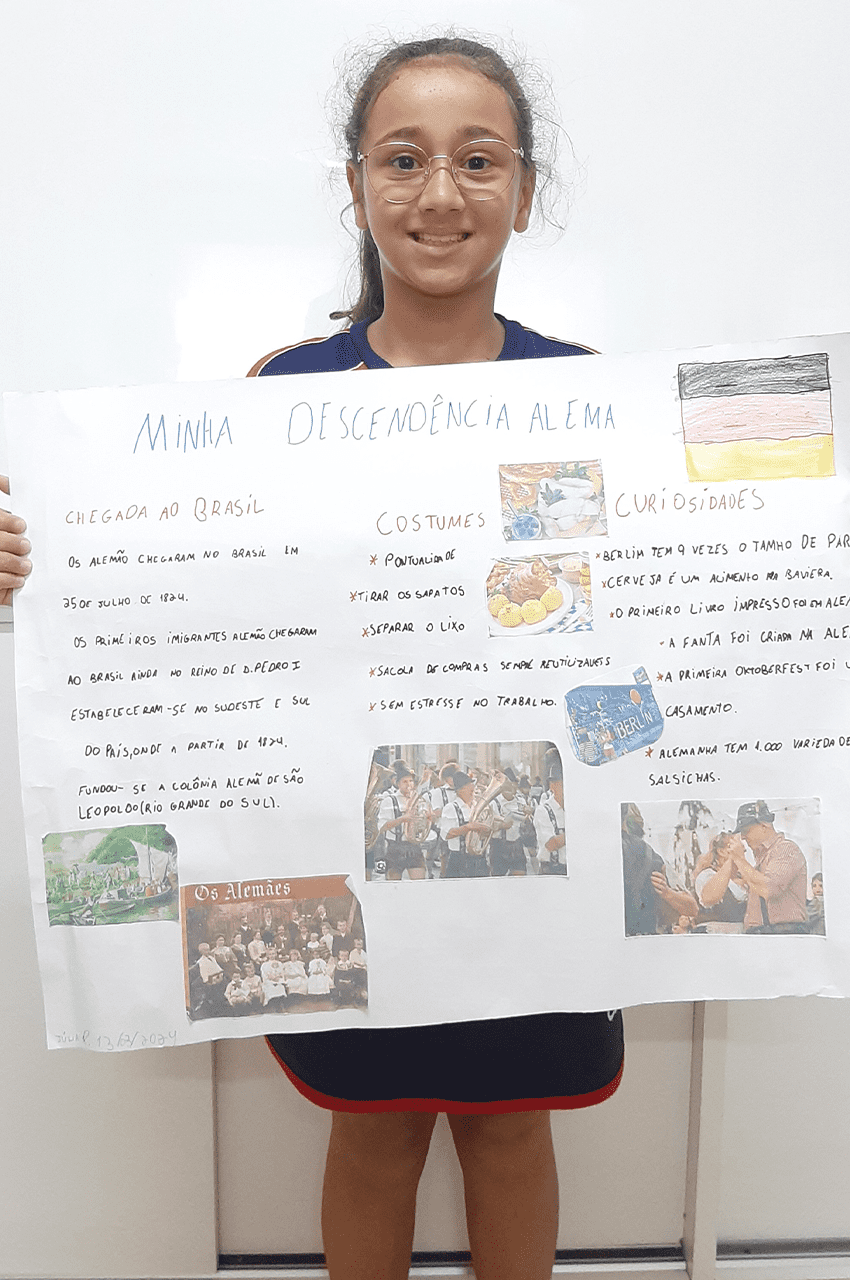 MINHA DESCENDÊNCIA ALEMA
CHEGADA AO BRASIL
OS ALEMÃO CHEGARAM NO BRASIL EM
25 DE JULHO DE 1824.
OS PRIMEIROS IMIGRANTES ALEMÃO CHEGARAM
AO BRASIL AINDA NO REINO DE D.PEDRO I
ESTABELECERAM-SE NO SUDESTE E SUL
DO PAÍS, ONDE A PARTIR DE 1824.
FUNDOU-SE A COLÔNIA ALEMÃ DE SÃO
LEOPOLDO (RIO GRANDE DO SUL).
Os Alemães
COSTUMES
* PONTUALIDADE
* TIRAR OS SAPATOS
* SEPARAR O LIXO
* SACOLA DE COMPRAS SEMPRE REUTILIZAVEIS
* SEM ESTRESSE NO TRABALHO.
BERLIN
CURIOSIDADES
* BERLIM TEM 9 VEZES O TAMHO DE PAR
* CERVEJA É UM ALIMENTO NA BAVIERA.
* O PRIMEIRO LIVRO IMPRESSO FOI EM ALE
- A FANTA FOI CRIADA NA ALE
* A PRIMEIRA OKTOBERFEST FOI U
CASAMENTO.
* ALEMANHA TEM 1.000 VARIEDADE
SALSICHAS.
2024